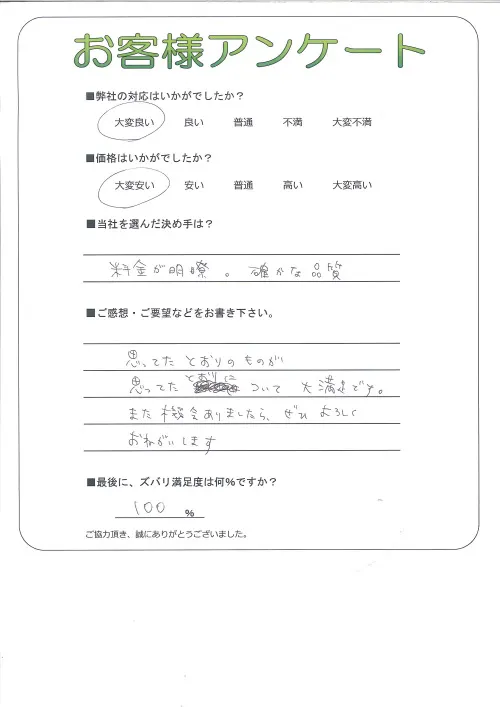 お客様アンケート
■弊社の対応はいかがでしたか？
大変良い 良い 普通 不満 大変不満
■価格はいかがでしたか？
大変安い 安い 普通 高い 大変高い
■当社を選んだ決め手は？
料金が明瞭。確かな品質
■ご感想・ご要望などをお書き下さい。
思ってたとおりのものが
思ってたとおりに ついて 大満足です。
また機会ありましたら、ぜひよろしく
おねがいします
■最後に、ズバリ満足度は何％ですか？
100 ％
ご協力頂き、誠にありがとうございました。